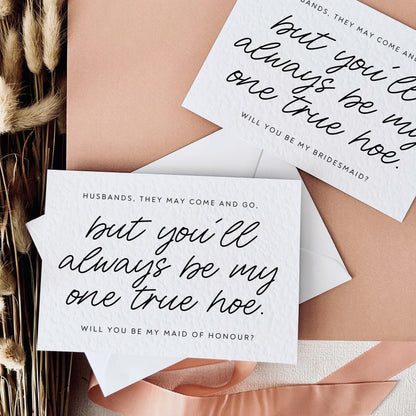 HUSBANDS, THEY MAY COME AND
but you'll
always be my
one true hoe.
WILL YOU BE MY BRIDESMAID?
HUSBANDS, THEY MAY COME AND GO,
but you'll
always be my
one true hoe.
WILL YOU BE MY MAID OF HONOUR?